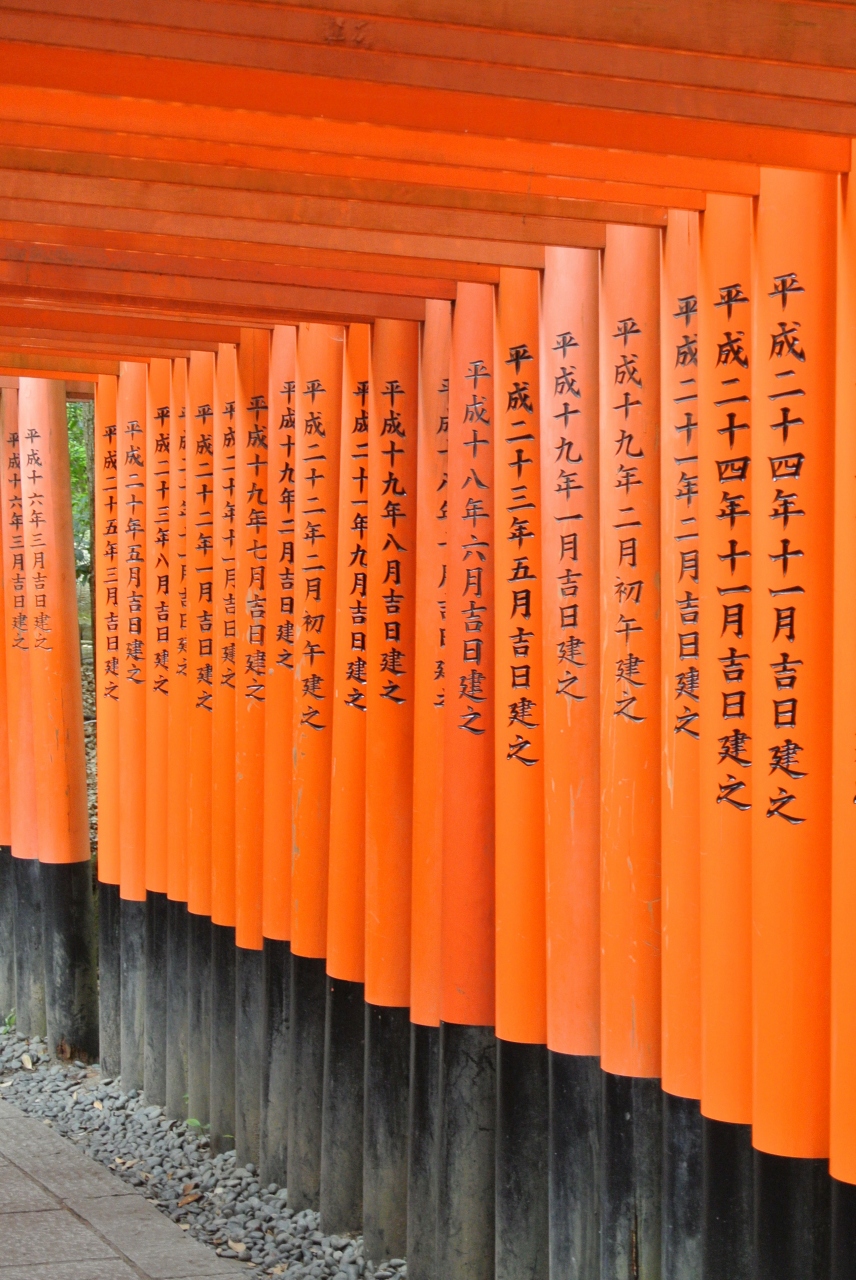 平成二十四年十一月吉日建之
平成二十四年十一月吉日建之
平成二十一年二月吉日建之
平成十九年二月初午建之
平成十九年一月吉日建之
平成二十三年五月吉日建之
平成十八年六月吉日建之
平成十九年八月吉日建之
平成二十一年九月吉日建之
平成二十二年二月初午建之
平成十九年二月吉日建之
平成十九年七月吉日建之
平成二十年十一月吉日建之
平成二十二年一月吉日建之
平成二十三年八月吉日建之
平成二十年五月吉日建之
平成二十五年三月吉日建之
平成十六年三月吉日建之
平成十六年三月吉日建之